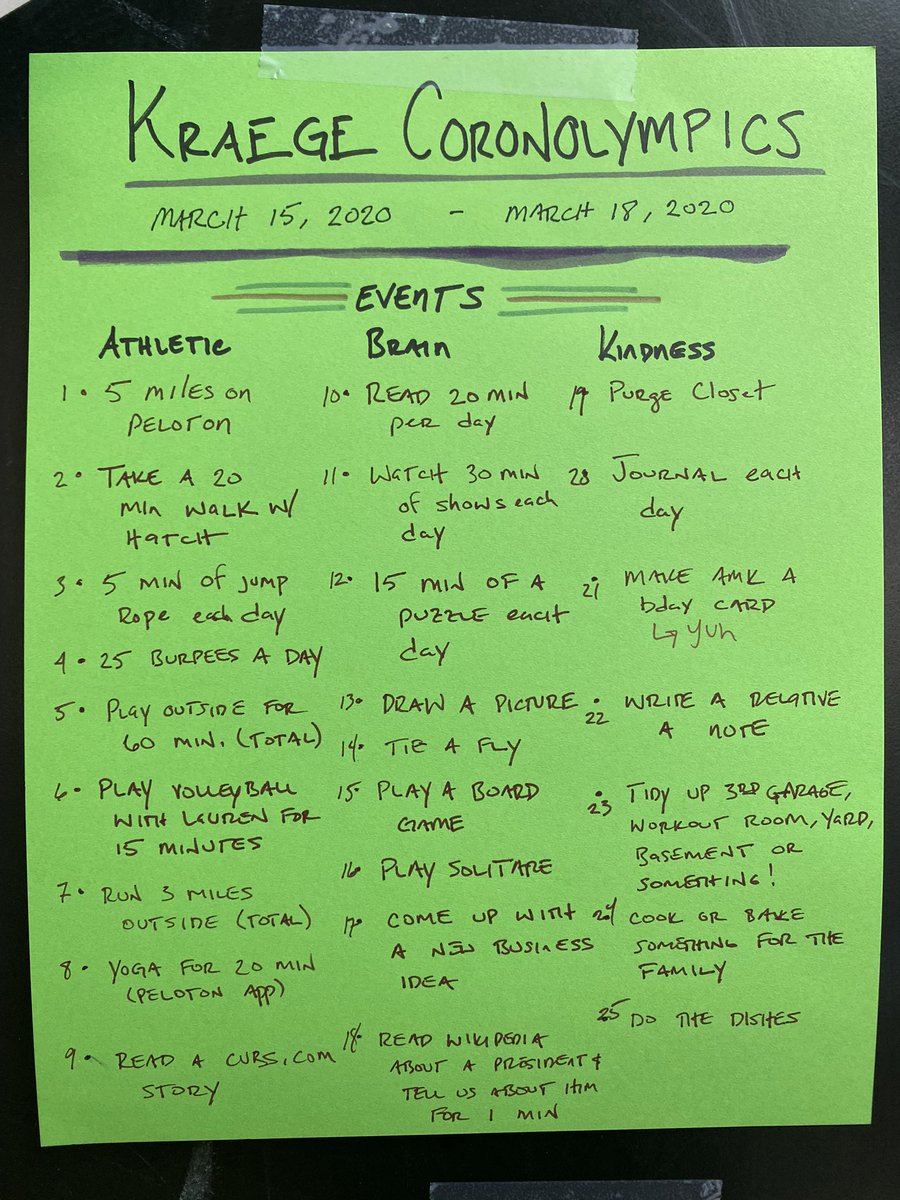 KRAEGE CORONOLYMPICS
MARCH 15, 2020 - MARCH 18, 2020
EVENTS
ATHLETIC
1. 5 miles on
PELOTON
2. TAKE A 20
MIN WALK W/
HATCH
3. 5 MIN of jump
Rope each day
4. 25 BURPEES A DAY
5. Play OUTSIDE FOR
60 MIN. (TOTAL)
6. PLAY VOLLEYBALL
WITH LAUREN FOR
15 MINUTES
7. RUN 3 MILES
OUTSIDE (TOTAL)
8. YOGA FOR 20 MIN
(PELOTON APP)
9. READ A CUBS.COM
STORY
BRAIN
10. READ 20 MIN
per day
11. WATCH 30 MIN
of shows each
day
12. 15 MIN OF A
PUZZLE each
day
13. DRAW A PICTURE
14. TIE A FLY
15. PLAY A BOARD
GAME
16. PLAY SOLITARE
17. COME UP WITH
A NEW BUSINESS
IDEA
18. READ WIKIPEDIA
ABOUT A PRESIDENT &
TELL US ABOUT HIM
FOR 1 MIN
KINDNESS
19 Purge Closet
20 JOURNAL each
day
21. MAKE AMK A
bday CARD
↳ yuh
22. WRITE A RELATIVE
A NOTE
23. TIDY UP 3RD GARAGE,
WORKOUT ROOM, YARD,
BASEMENT OR
SOMETHING!
24 COOK OR BAKE
SOMETHING FOR THE
FAMILY
25 DO THE DISHES